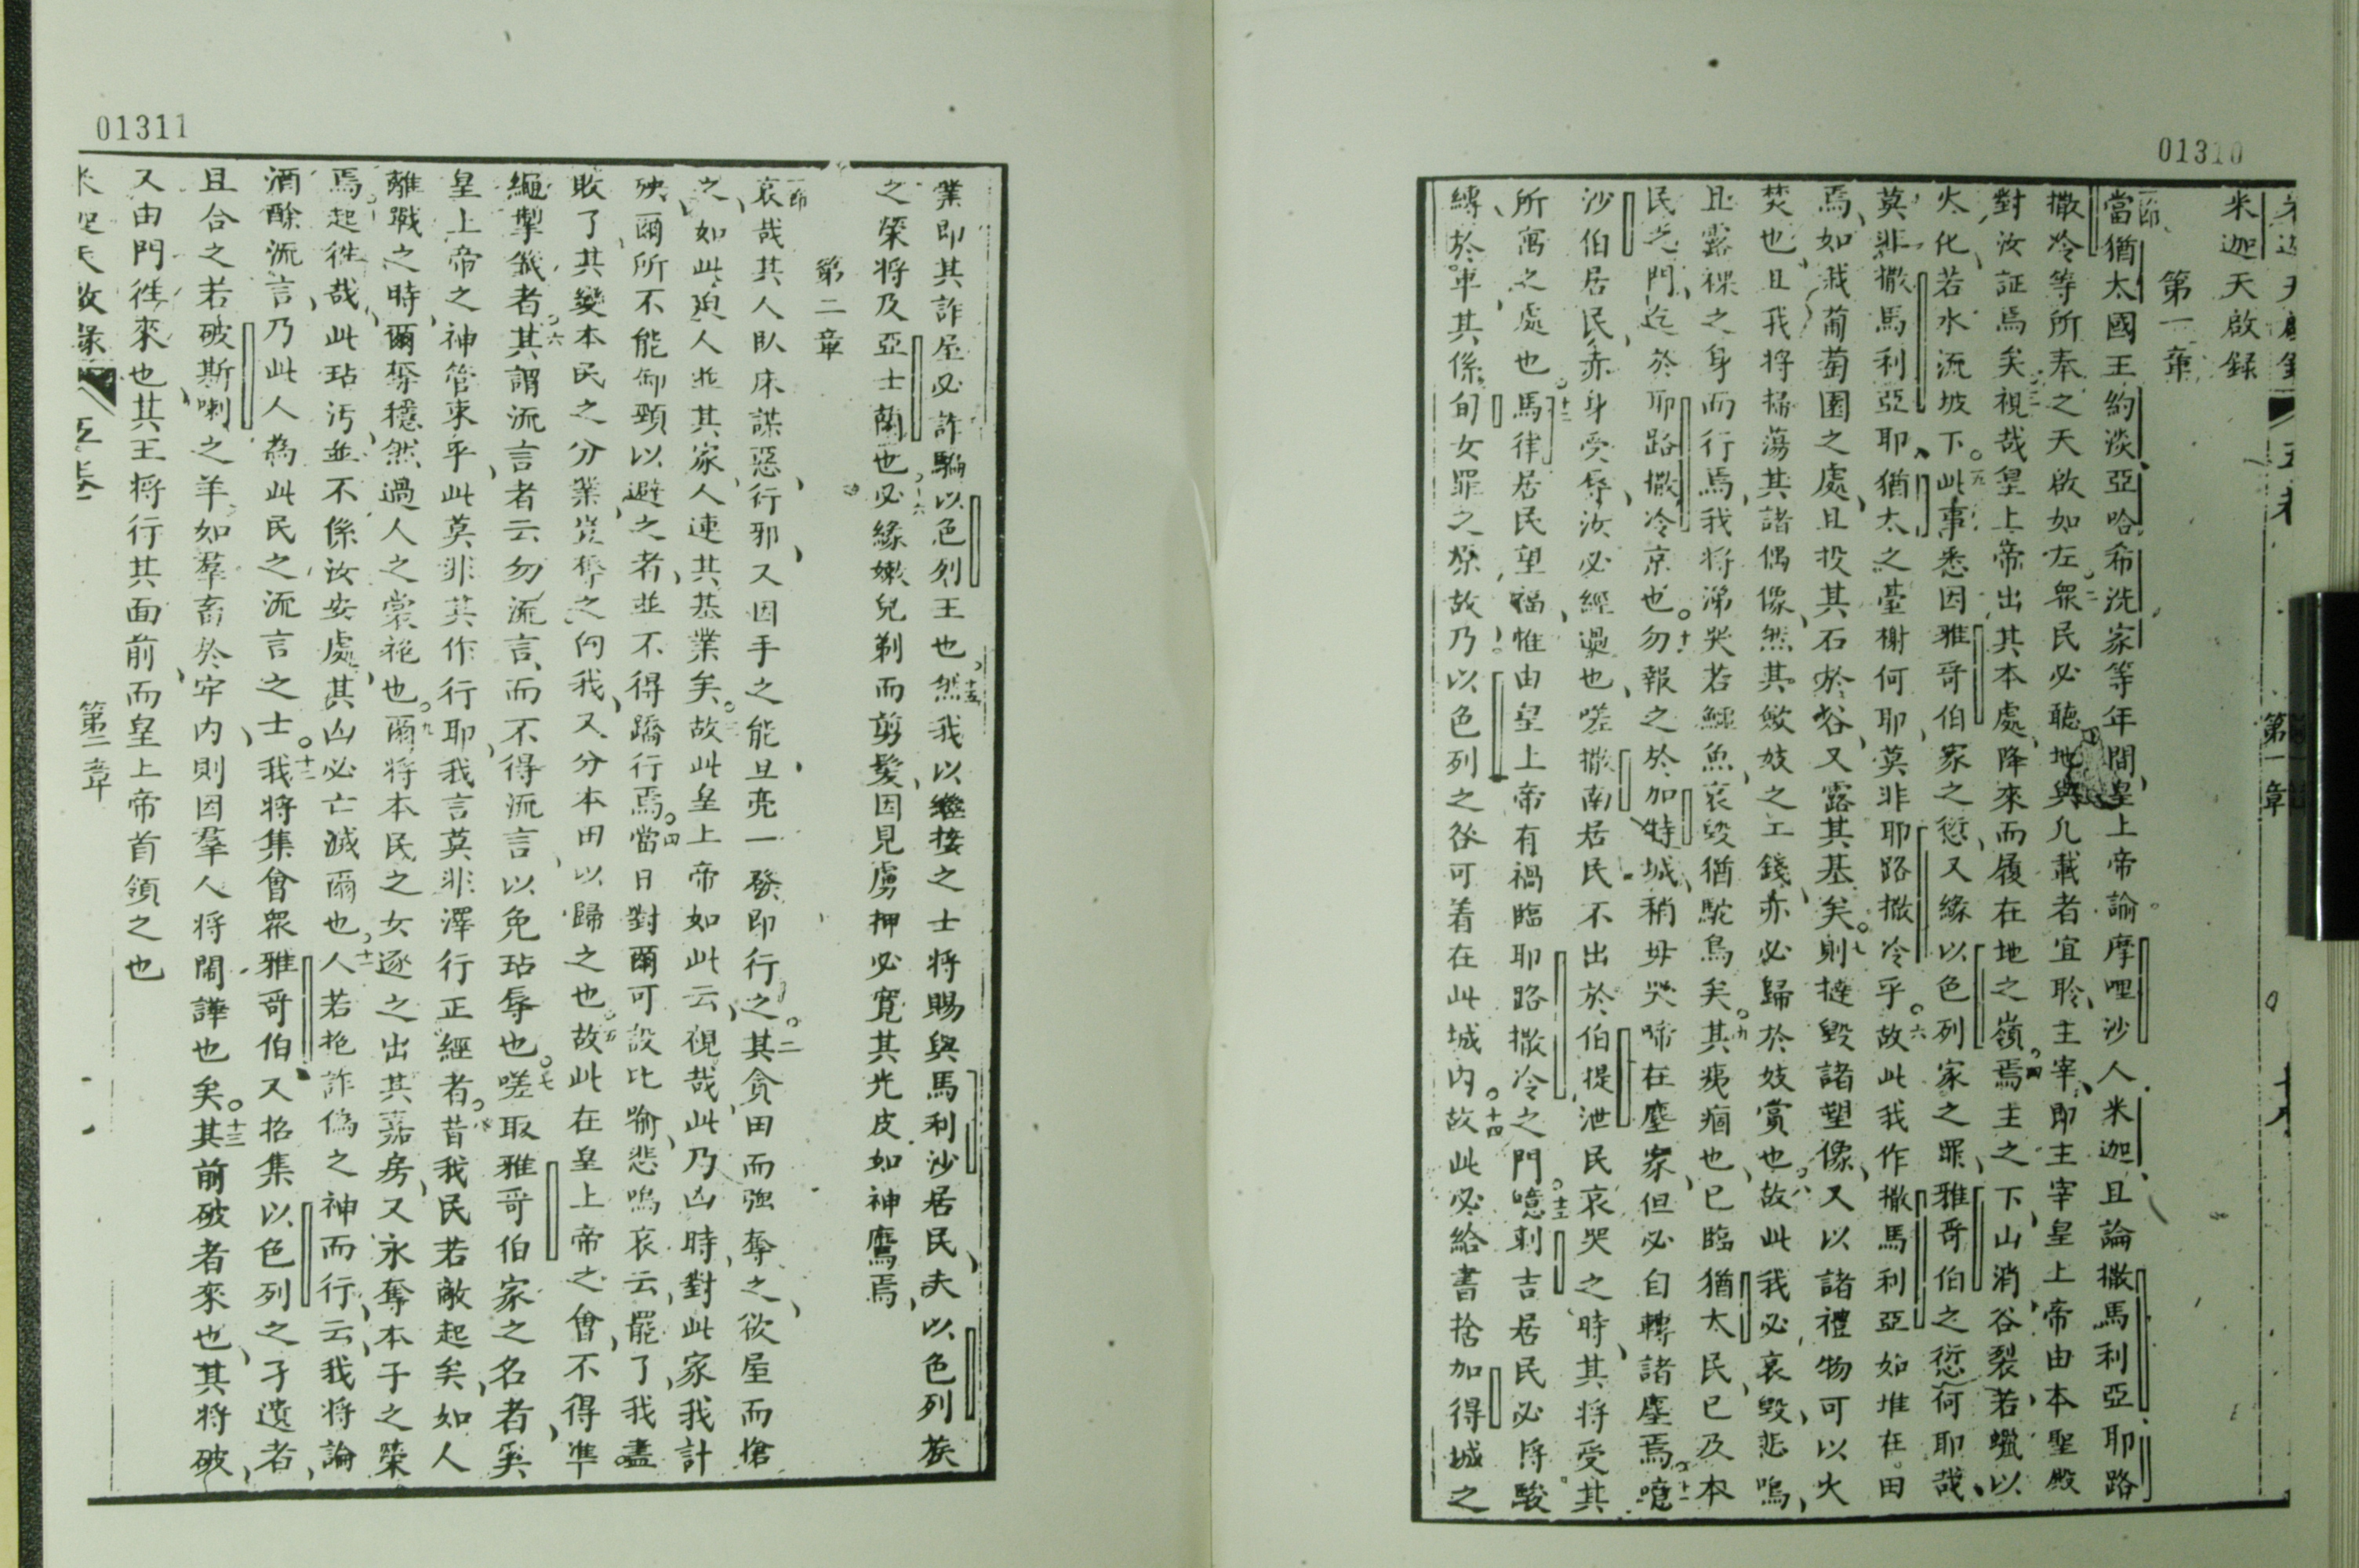 01310
米迦天啟錄
第一章
一節
當猶太國王約淡亞哈希洗家等年間皇上帝諭摩哩沙人米迦且論撒馬利亞耶路
撒冷等所奉之天啟如左二眾民必聽地與凡載者宜聆主宰即主宰皇上帝由本聖殿
對汝証焉矣三視哉皇上帝出其本處降來而履在地之嶺焉四主之下山消谷裂若蠟以
火化若水流坡下五此事悉因雅哥伯家之愆又緣以色列家之罪雅哥伯之愆何耶哉
莫非撒馬利亞耶猶太之臺榭何耶莫非耶路撒冷乎六故此我作撒馬利亞如堆在田
焉如栽葡萄園之處且投其石於谷又露其基矣七則撻毀諸塑像又以諸禮物可以火
焚也且我將掃蕩其諸偶像然其斂妓之工錢亦必歸於妓賞也八故此我必哀毀悲鳴
且露裸之身而行焉我將涕哭若鱷魚哀毀猶駝鳥矣九其痍痼也已臨猶太民已及本
民之門迄於耶路撒冷京也十勿報之於加特城稍毋哭啼在塵家但必自轉諸塵焉十一噫
沙伯居民赤身受辱汝必經過也嗟撒南居民不出於伯提泄民哀哭之時其將受其
所寓之處也十二馬律居民望福惟由皇上帝有禍臨耶路撒冷之門十三噫剌吉居民必將駿
縛於車其係郇女罪之原故乃以色列之咎可着在此城內十四故此必給書捨加得城之
01311
業即其詐屋必詐騙以色列王也十五然我以繼接之士將賜與馬利沙居民夫以色列族
之榮將及亞士蘭也十六必緣嫩兒剃而剪髮因見虜押必寬其光皮如神鷹焉
第二章
一節
哀哉其人臥床謀惡行邪又因手之能旦亮一發即行之二其貪田而強奪之欲屋而搶
之如此廹人並其家人連其基業矣三故此皇上帝如此云視哉此乃凶時對此家我計
殃爾所不能卸頸以避之者並不得蹻行焉四當日對爾可設比喻悲嗚哀云罷了我盡
敗了其變本民之分業豈奪之向我又分本田以歸之也五故此在皇上帝之會不得準
繩掣籤者六其謂流言者云勿流言而不得流言以免玷辱也七嗟取雅哥伯家之名者奚
皇上帝之神管束乎此莫非其作行耶我言莫非澤行正經者八昔我民若敵起矣如人
離戰之時爾奪穩然過人之裳袍也九爾將本民之女逐之出其嘉房又永奪本子之榮
焉十起徃哉此玷汚並不係汝安處其凶必亡滅爾也十一人若抱詐偽之神而行云我將論
酒酴流言乃此人為此民之流言之士十二我將集會眾雅哥伯又招集以色列之孑遺者
且合之若破斯喇之羊如羣畜於牢內則因羣人將鬧譁也矣十三其前破者來也其將破
又由門徃來也其王將行其面前而皇上帝首領之也
米迦天啟錄
第二章